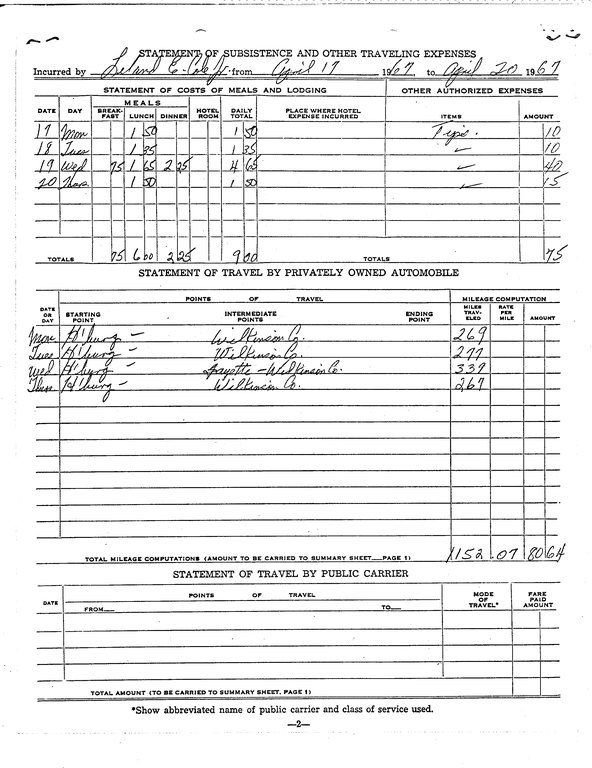 STATEMENT OF SUBSISTENCE AND OTHER TRAVELING EXPENSES
Incurred by Leland E. Cole Jr. from April 17 1967 to April 20 1967
STATEMENT OF COSTS OF MEALS AND LODGING OTHER AUTHORIZED EXPENSES
DATE DAY MEALS BREAK-FAST LUNCH DINNER HOTEL ROOM DAILY TOTAL PLACE WHERE HOTEL EXPENSE INCURRED ITEMS AMOUNT
17 Mon 1 50 1 50 Tips. 10
18 Tues 1 35 1 35 ✓ 10
19 Wed 75 1 65 2 25 4 65 ✓ 40
20 Thurs 1 50 1 50 ✓ 15
TOTALS 75 6 00 2 25 9 00 TOTALS 75
STATEMENT OF TRAVEL BY PRIVATELY OWNED AUTOMOBILE
POINTS OF TRAVEL MILEAGE COMPUTATION
DATE OR DAY STARTING POINT INTERMEDIATE POINTS ENDING POINT MILES TRAV-ELED RATE PER MILE AMOUNT
Mon H'burg - Wilkinson Co. 269
Tues H'burg - Wilkinson Co. 277
Wed H'burg - Fayette - Wilkinson Co. 339
Thur H'burg - Wilkinson Co. 267
TOTAL MILEAGE COMPUTATIONS (AMOUNT TO BE CARRIED TO SUMMARY SHEET__PAGE 1) 1152 .07 80 64
STATEMENT OF TRAVEL BY PUBLIC CARRIER
DATE POINTS OF TRAVEL MODE OF TRAVEL* FARE PAID AMOUNT
FROM__ TO__
TOTAL AMOUNT (TO BE CARRIED TO SUMMARY SHEET, PAGE 1)
*Show abbreviated name of public carrier and class of service used.
—2—